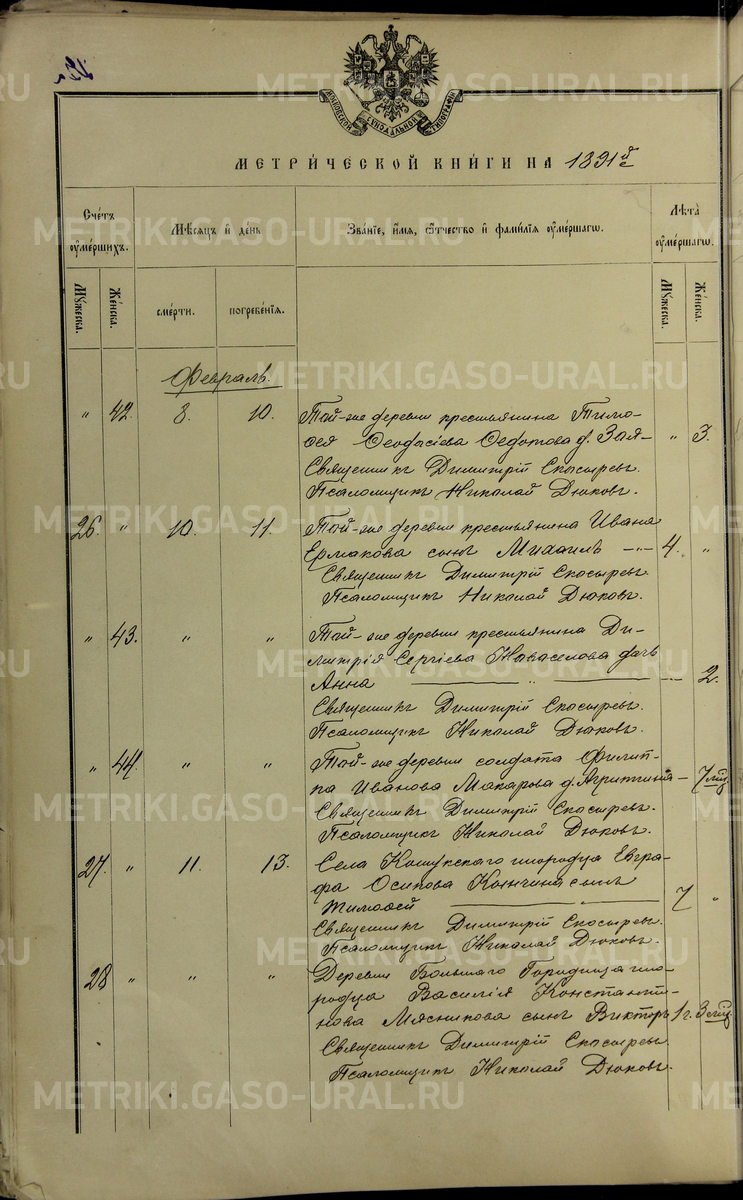 МОСКОВСКОЙ СѴНОДАЛЬНОЙ ТИПОГРАФІИ
МЕТРИ́ЧЕСКОЙ КНИ́ГИ НА 1891й
Сче́тъ ᲂу҆ме́ршихъ.
Мѣ́сяцъ и҆ де́нь
Зва́нїе, и҆́мя, ѻ҆́тчество и҆ фами́лїя ᲂу҆ме́ршагѡ.
Лѣ́та ᲂу҆ме́ршагѡ.
Му́жеска. Же́нска. сме́рти. погребе́нїя. Му́жеска. Же́нска.
Февраль.
" 42. 8. 10. Той-же деревни крестьянина Тимо-
ѳея Ѳеодосіева Ѳедотова д. Зоя— " 3.
Священникъ Димитрій Скосыревъ.
Псаломщикъ Николай Дюковъ.
26. " 10. 11. Той-же деревни крестьянина Ивана
Ермакова сынъ Михаилъ —"— 4. "
Священникъ Димитрій Скосыревъ.
Псаломщикъ Николай Дюковъ.
" 43. " " Той-же деревни крестьянина Ди-
митрія Сергіева дочь
Анна — " — 2.
Священникъ Димитрій Скосыревъ.
Псаломщикъ Николай Дюковъ.
" 44. " " Той-же деревни солдата Филип-
па Иванова Макарова д. Агриппина — 7 мѣц.
Священникъ Димитрій Скосыревъ.
Псаломщикъ Николай Дюковъ.
27. " 11. 13. Села Кошукскаго инородца Евгра-
фа Осипова сынъ
Тимоѳей — " — 7 "
Священникъ Димитрій Скосыревъ.
Псаломщикъ Николай Дюковъ.
28 " " " Деревни Большаго Городища ино-
родца Василія Константи-
нова Мясникова сынъ Викторъ 1 г. 3 мѣц.
Священникъ Димитрій Скосыревъ.
Псаломщикъ Николай Дюковъ.
METRIKI.GASO-URAL.RU